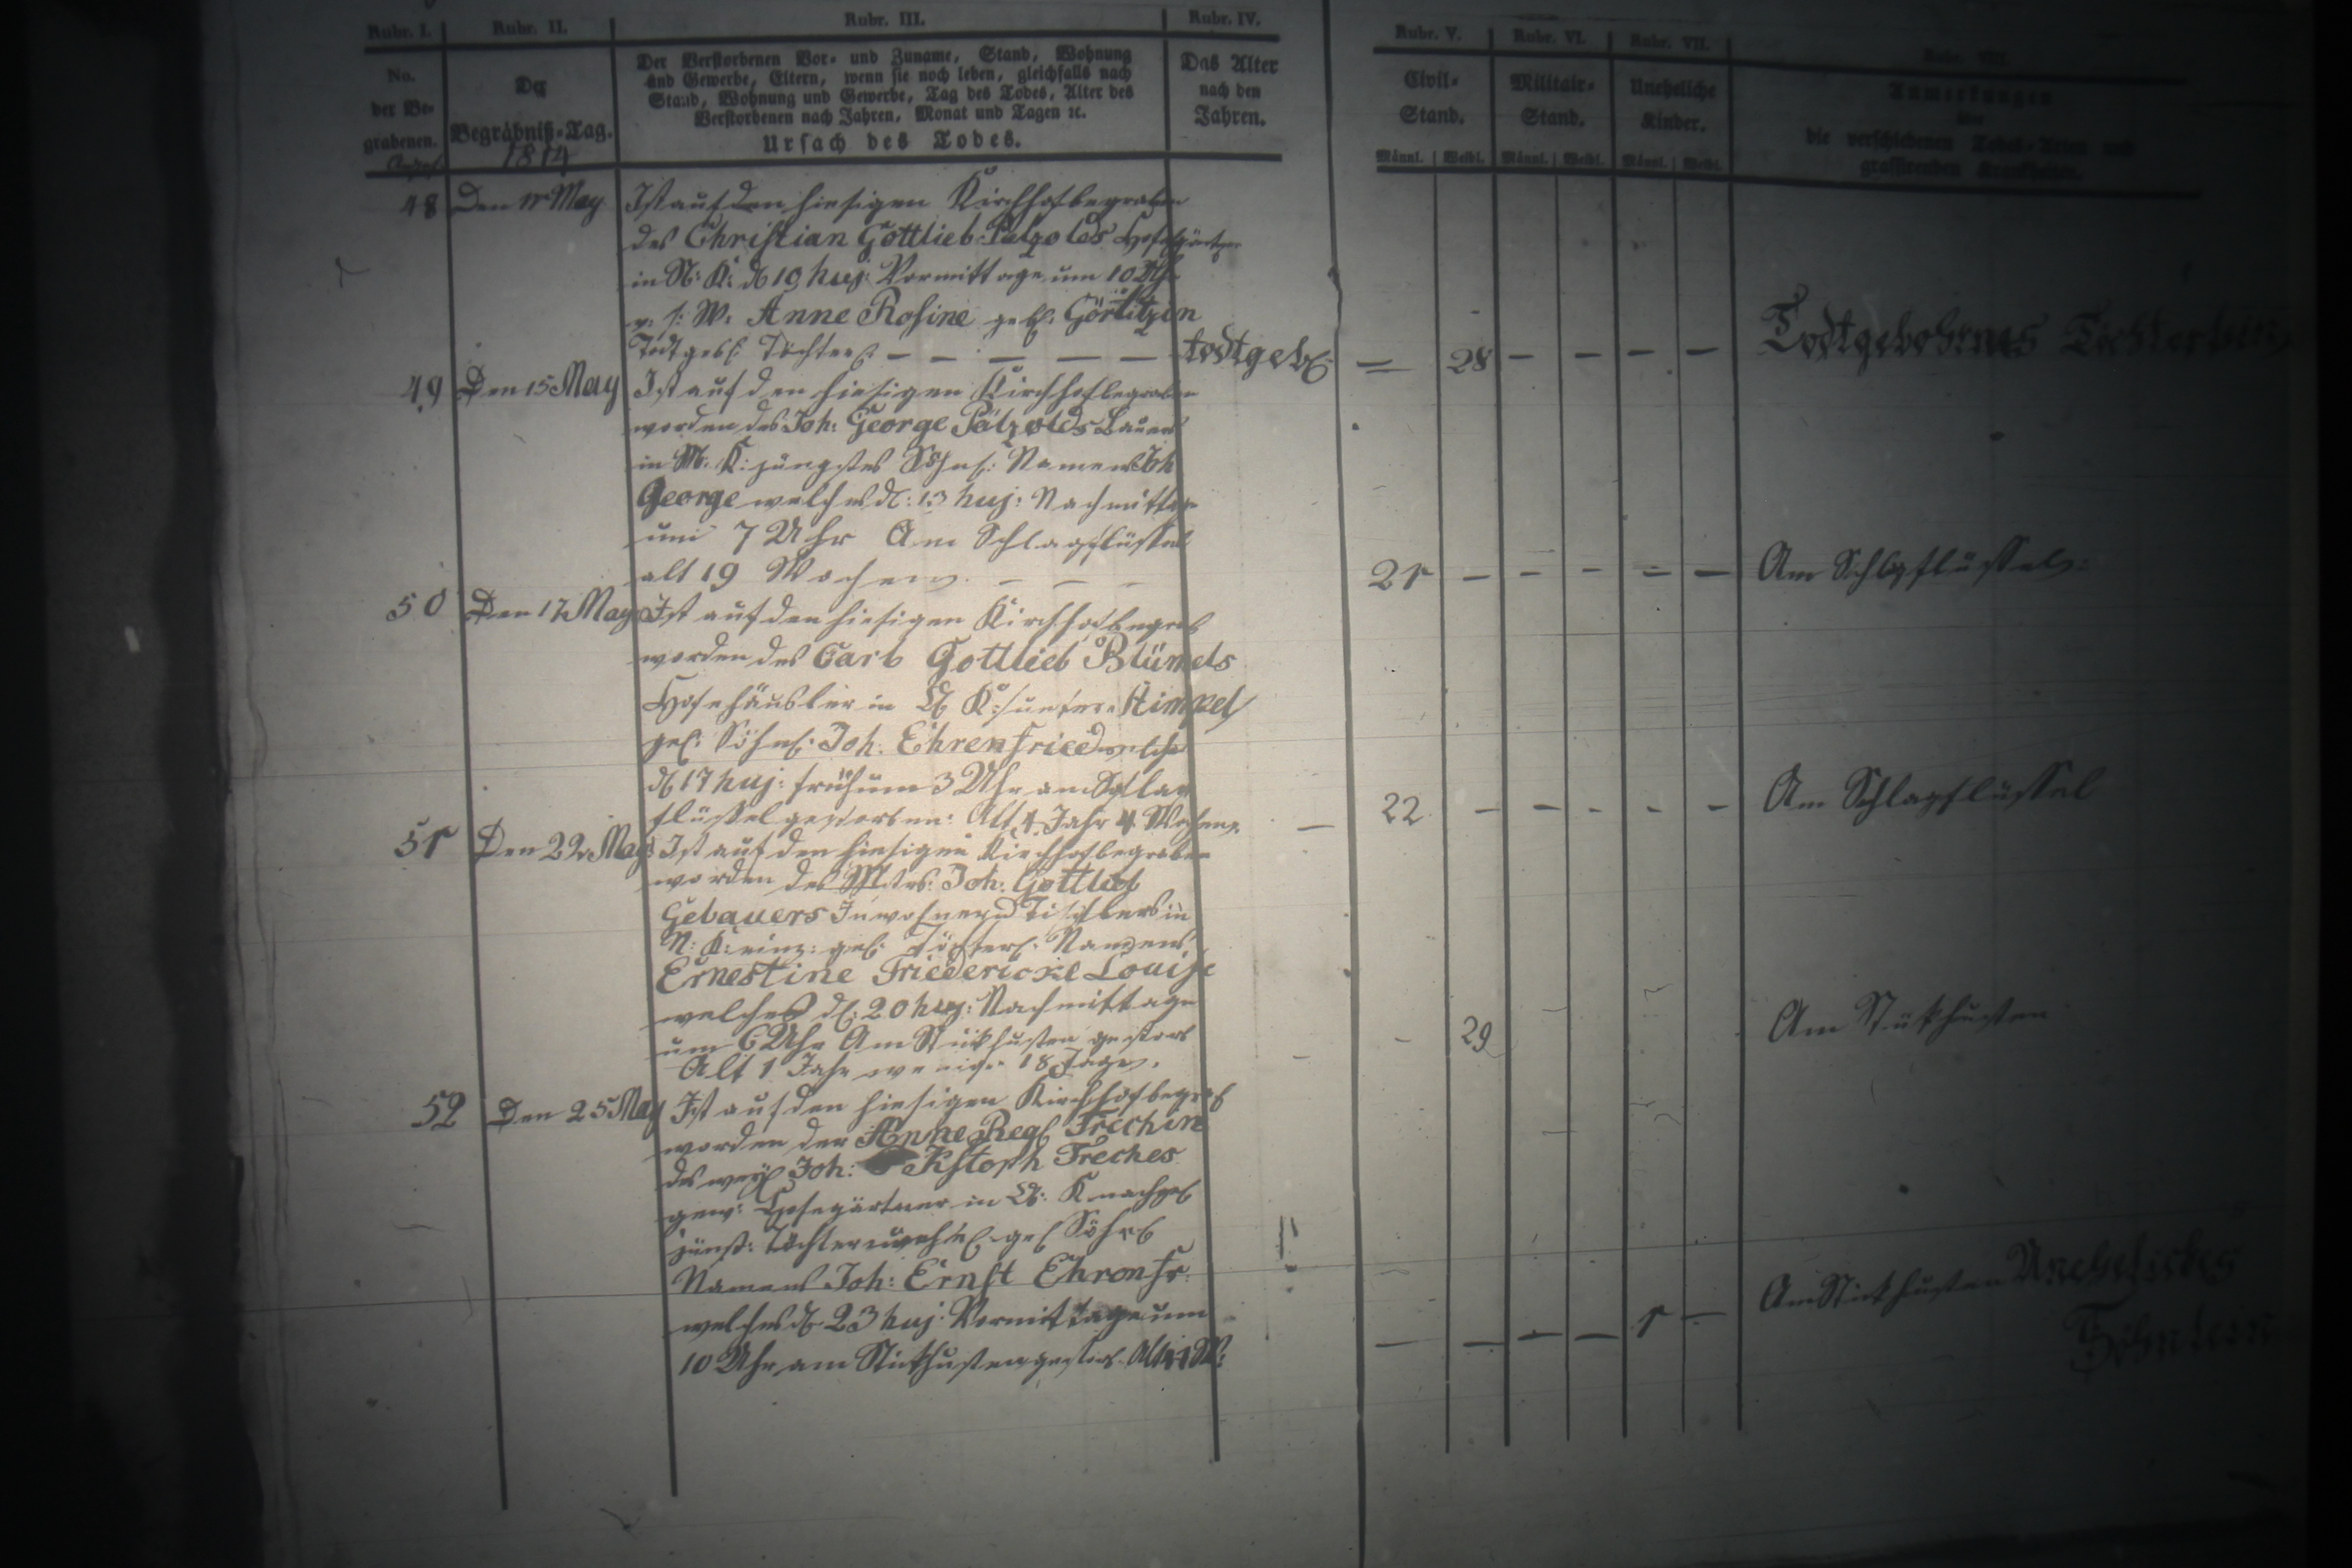 Rubr. I. Rubr. II. Rubr. III. Rubr. IV. Rubr. V. Rubr. VI. Rubr. VII. Rubr. VIII.
No.
der Be-
grabenen.
Der
Begräbniß-Tag.
1814
Der Verstorbenen Vor- und Zuname, Stand, Wohnung
und Gewerbe, Eltern, wenn sie noch leben, gleichfalls nach
Stand, Wohnung und Gewerbe, Tag des Todes, Alter des
Verstorbenen nach Jahren, Monat und Tagen ꝛc.
Ursach des Todes.
Das Alter
nach den
Jahren.
Civil-
Stand.
Männl. Weibl.
Militair-
Stand.
Männl. Weibl.
Uneheliche
Kinder.
Männl. Weibl.
Anmerkungen
über
die verschiedenen Todes-Arten und
grassirenden Krankheiten.
48 Den 11 May Ist auf den hiesigen Kirchhof begraben
des Christian Gottlieb Pätzolds Hofegärtner
in N: K: d 10 huj: Vormittage um 10 Uhr
v. s: W: Anne Rosine geb: Görlitzin
Todtgeb: Töchterl: — — — — — todtgeb: = 28 — — — — Todtgebohrnes Töchterlein
49 Den 15 May Ist auf den hiesigen Kirchhof begraben
worden des Joh: George Pätzolds Bauers
in M: K: jüngstes Söhnl: Namens Joh
George welches d: 13 huj: Nachmittage
um 7 Uhr Am Schlagflüssel
alt 19 Wochen. — — — 21 — — — — — Am Schlagflüssel:
50 Den 17 May Ist auf den hiesigen Kirchhof begrab
worden des Carl Gottlieb Blümels
Hofehäusler in K: Himpel
gel: Söhnl: Joh. Ehrenfried welches
d 17 huj: früh um 3 Uhr am Schlag
flüssel gestorben: Alt 4 Jahr 4 Wochen. — 22 — — — — — Am Schlagflüssel
51 Den 22 May Ist auf den hiesigen Kirchhof begraben
worden des Mstrs: Joh: Gottlieb
Gebauers Inwohner u Tischlers in
N: K: einz: gel: Töchterl: Namens
Ernestine Friedericke Louise
welches d: 20 huj: Nachmittage
um 6 Uhr Am Stickhusten gestorb
Alt 1 Jahr weniger 18 Tage. — — 29 Am Stickhusten
52 Den 25 May Ist auf den hiesigen Kirchhof begrab
worden der Anne Regl Frechin
des weyl Joh: Xstoph Freches
gew: Hofegärtner in K nachgel
jüngst: Töchter unehel gel Söhnl
Namens Joh: Ernst Ehrenfr.
welches d 23 huj: Vormittage um
10 Uhr am Stickhusten gestorb. — — — — 1 — Am Stickhusten Uneheliches
Söhnlein